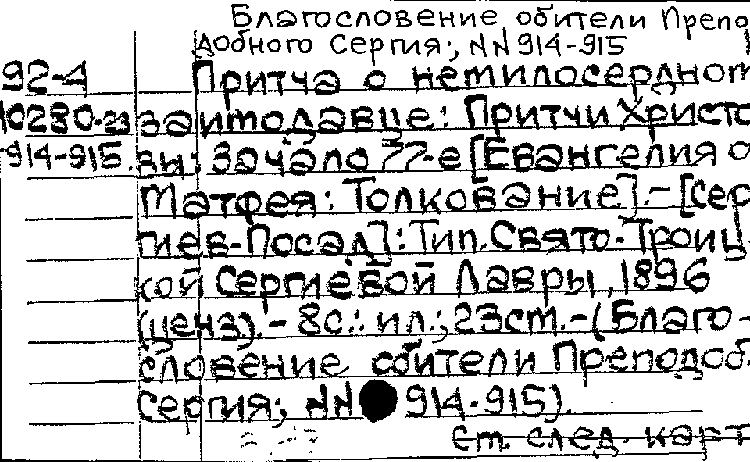 Благословение обители Препо
добного Сергия; NN 914-915
92-4 Притча о немилосердном
10280-23 заимодавце: Притчи Христо
914-915. вы: Зачало 77-е [Евангелия о
Матфея: Толкование].- [Сер
гиев-Посад]: Тип. Свято-Троиц
кой Сергиевой Лавры, 1896
(ценз).- 8с.: ил.; 23см.-(Благо-
словение обители Преподоб
Сергия; NN 914-915).
См. след. карт